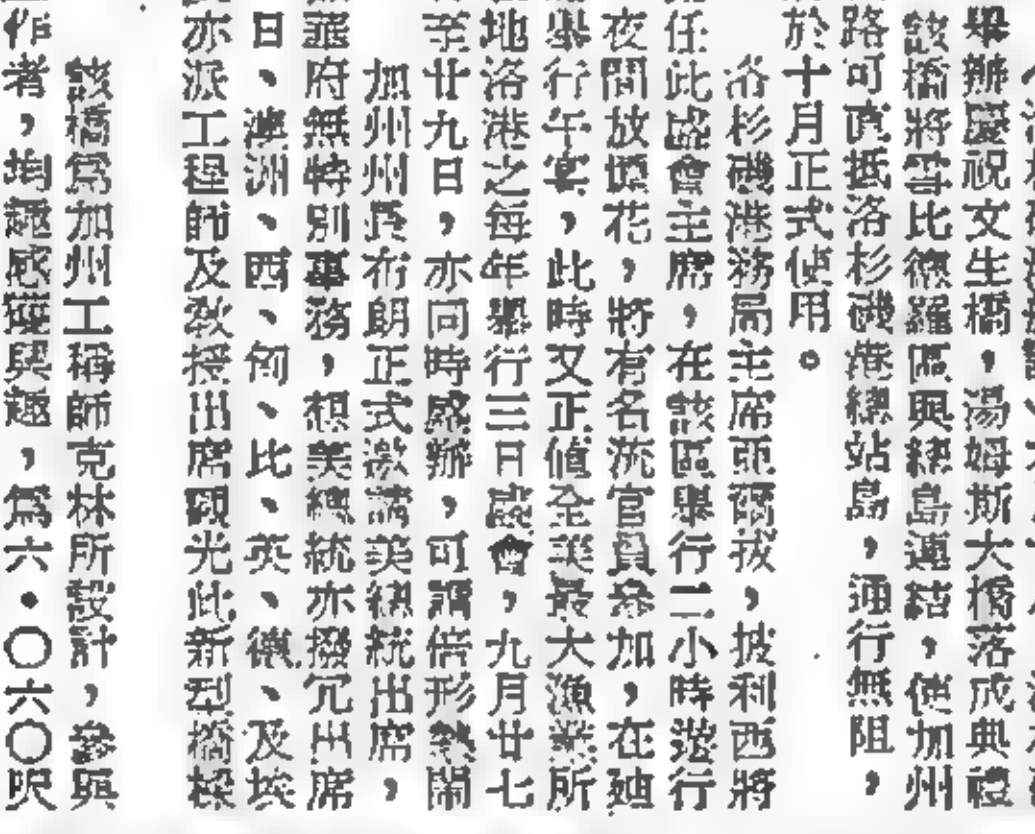 舉辦慶祝文生橋,湯姆斯大橋落成典禮
該橋將雪比德羅區與總島連結,使加州
路可直抵洛杉磯港總站島,通行無阻,
於十月正式使用。
洛杉磯港務局主席亞爾拔,披利西將
任此盛會主席,在該區舉行二小時遊行
夜間放煙花,將有名流官員參加,在廸
舉行午宴,此時又正值全美最大漁業所
地洛港之每年舉行三日盛會,九月廿七
至廿九日,亦同時盛辦,可謂倍形熱鬧
加州州長布朗正式邀請美總統出席,
華府無特別事務,想美總統亦撥冗出席
日、澳洲、西、荷、比、英、德、及埃
亦派工程師及敎授出席觀光此新型橋樑
該橋爲加州工程師克林所設計,參與
作者,均趣感獲與趣,爲六•〇六〇呎